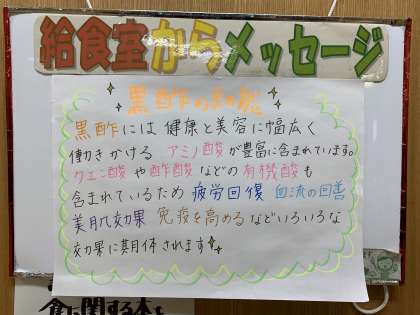 給食室からメッセージ
黒酢の知恵
黒酢には 健康と美容に幅広く
働きかける アミノ酸が豊富に含まれています。
クエン酸や酢酢酸などの有機酸も
含まれているため 疲労回復 血流の回善
美肌効果 免疫を高めるなどいろいろな
効果に期待されます
食に関する本を